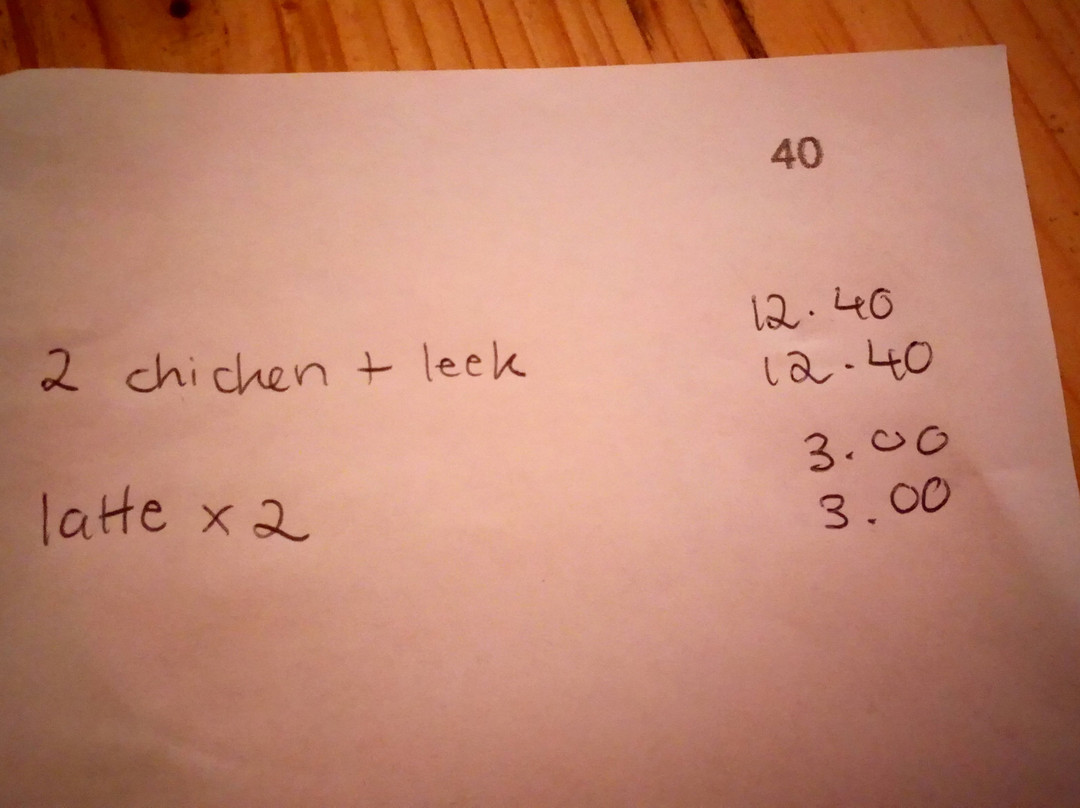 40
12.40
2 chicken + leek 12.40
3.00
latte x 2 3.00